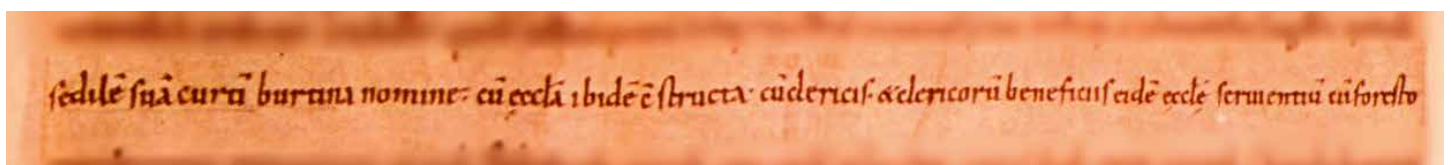 sedilē suā curtī burtini nomine: cū ęcclā ibidē c̄structa· cū clericis· & clericorū beneficiis eidē ęcclę seruientiū cū foresto